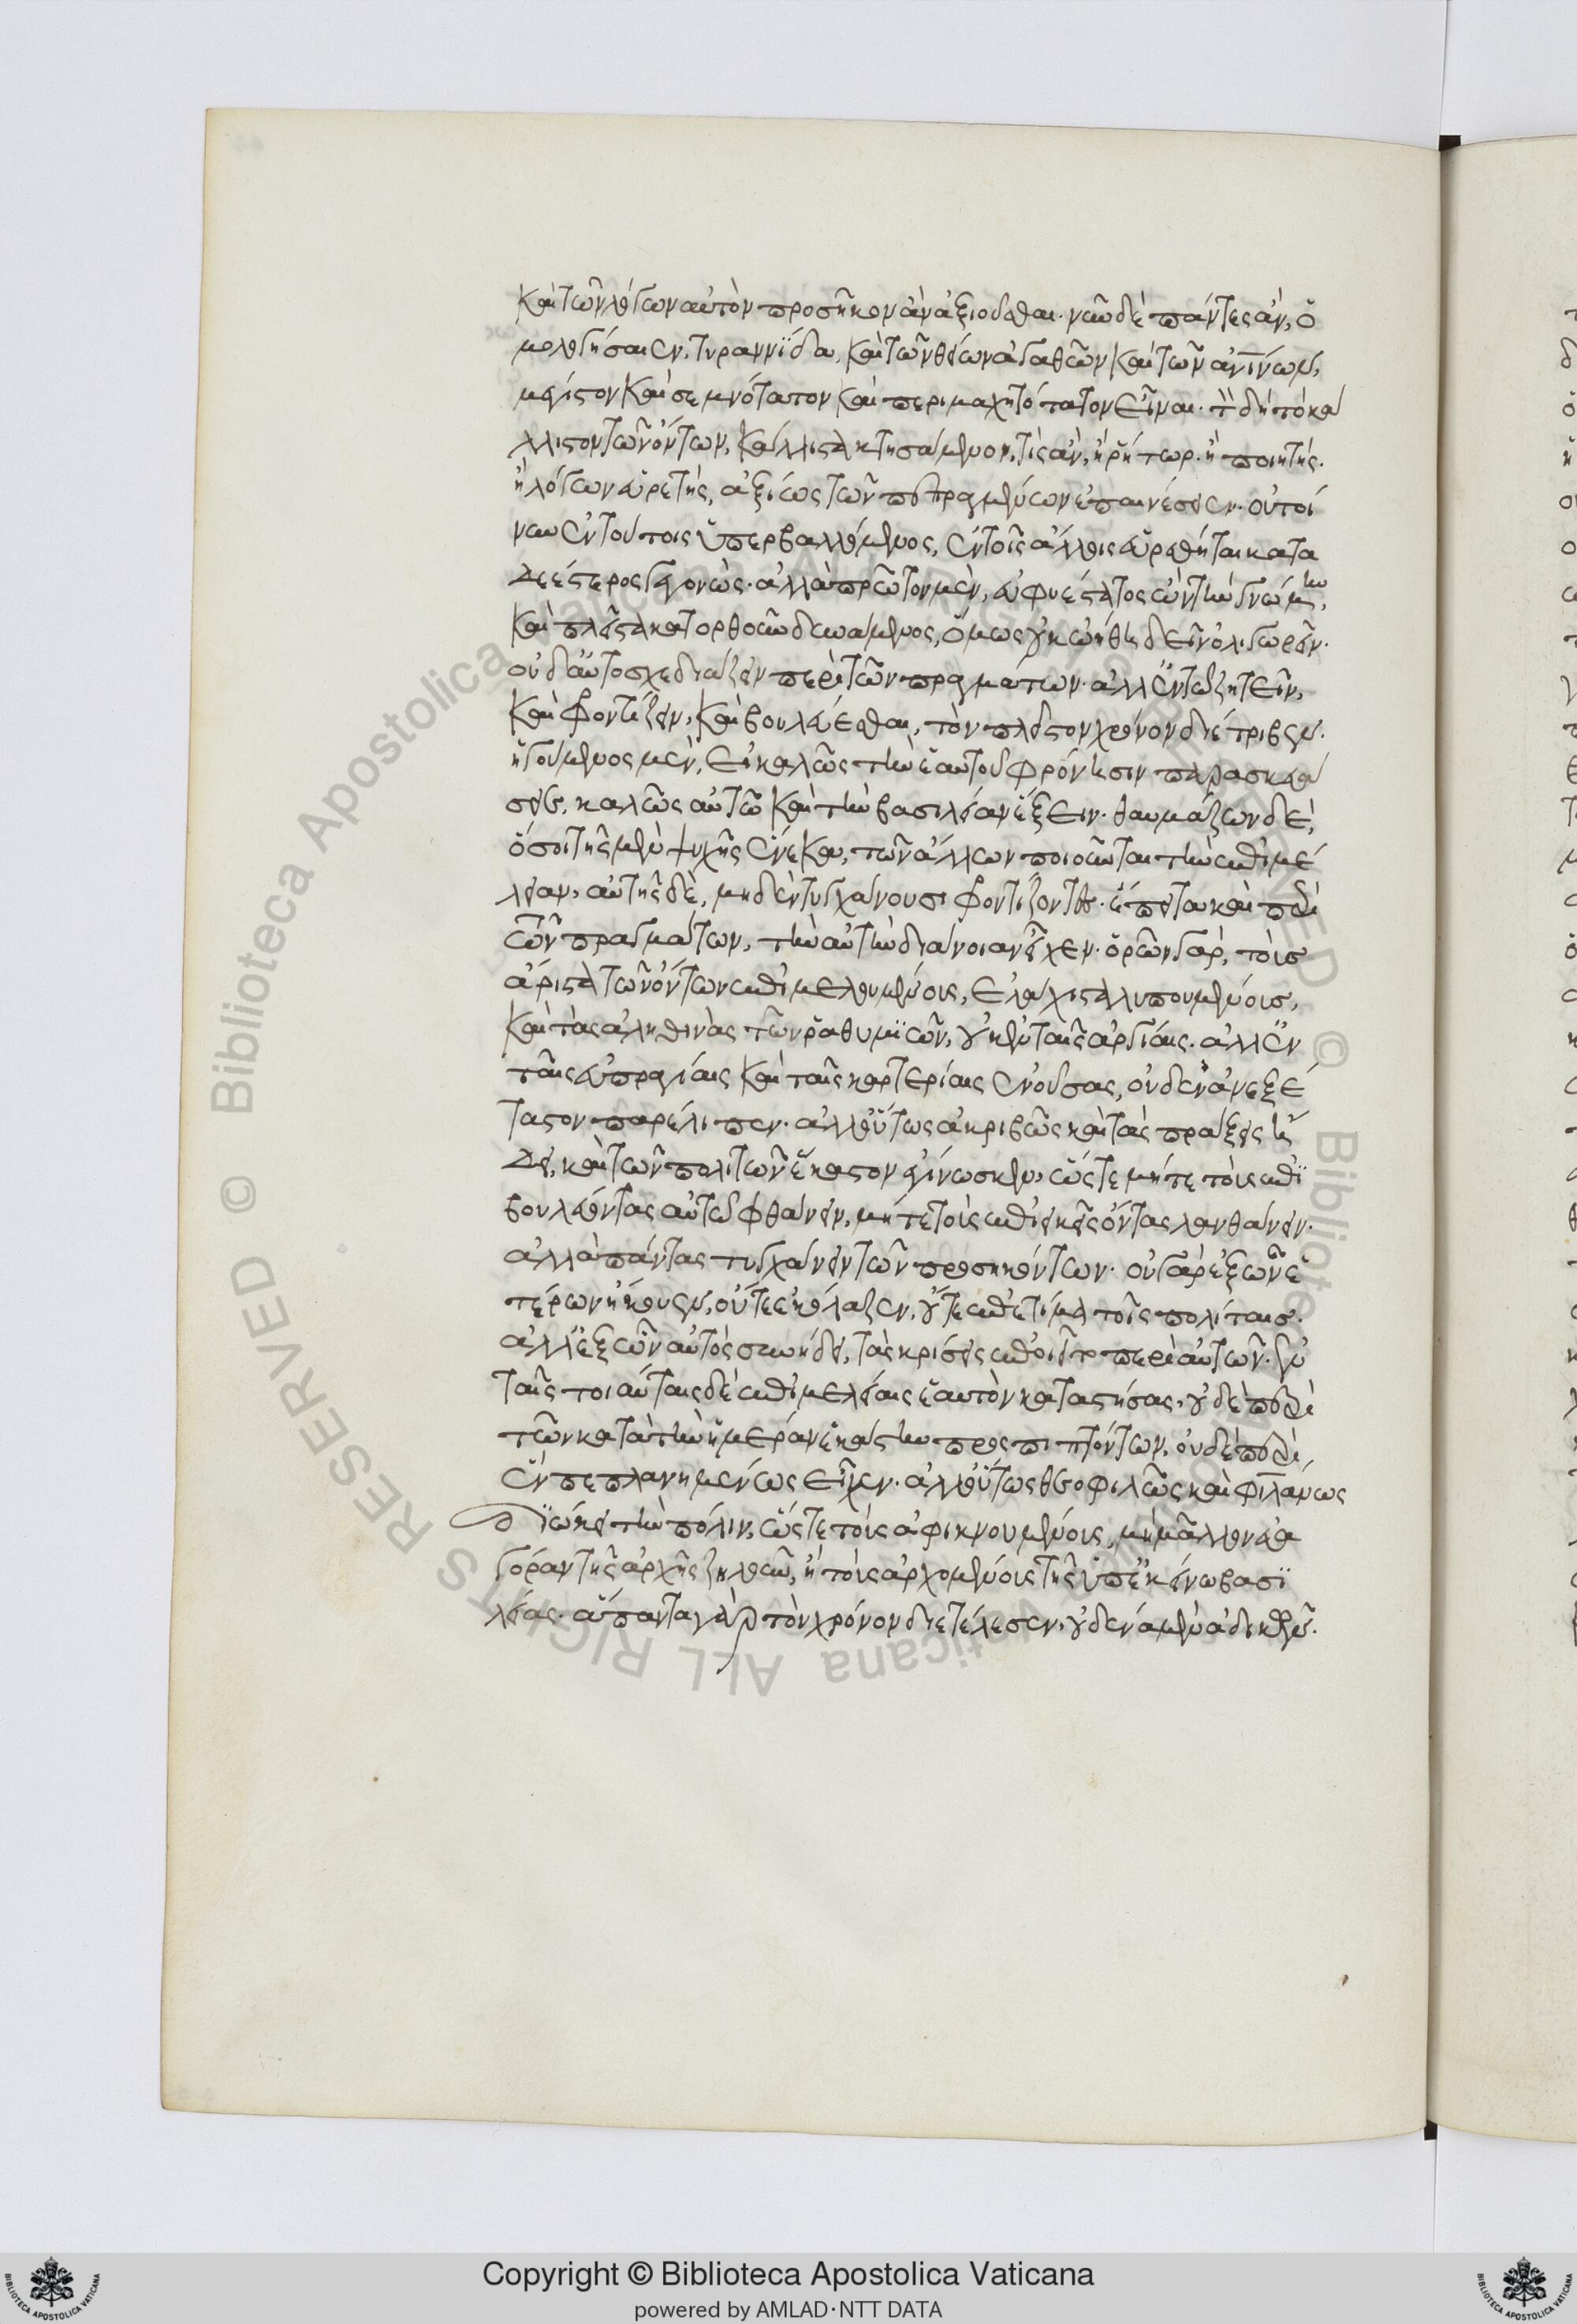 καὶ τῶν λόγων αὐτὸν προσῆκον ἂν ἀξιοῦσθαι. νῦν δὲ πάντες ἂν, ὁ
μολογήσαιεν, τυραννίδα, καὶ τῶν θείων ἀγαθῶν καὶ τῶν ἀνθρωπίνων,
μέγιστον καὶ σεμνότατον καὶ περιμαχητότατον εἶναι. τὸν δὴ τὸ κάλ
λιστον τῶν ὄντων, κάλλιστα κτησάμενον, τίς ἂν, ἢ ῥήτωρ. ἢ ποιητὴς.
ἢ λόγων εὑρετὴς, ἀξίως τῶν πεπραγμένων ἐπαινέσειεν. οὐ τοί
νυν ἐν τούτοις ὑπερβαλλόμενος, ἐν τοῖς ἄλλοις εὑρεθήσεται κατα
δεέστερος γεγονώς. ἀλλὰ πρῶτον μὲν, εὐφυέστατος ὢν τὴν γνώμην,
καὶ πλεῖστα κατορθοῦν δυνάμενος, ὅμως οὐκ ᾠήθη δεῖν ὀλιγωρεῖν.
οὐδ' αὐτοσχεδιάζειν περὶ τῶν πραγμάτων. ἀλλ' ἐν τῷ ζητεῖν,
καὶ φροντίζειν, καὶ βουλεύεσθαι, τὸν πλεῖστον χρόνον διέτριβεν.
ἡγούμενος μὲν, εἰ καλῶς τὴν ἑαυτοῦ φρόνησιν παρασκευά
σειε, καλῶς αὐτῷ καὶ τὴν βασιλείαν ἕξειν. θαυμάζων δὲ,
ὅσοι τῆς μὲν ψυχῆς ἕνεκα, τῶν ἄλλων ποιοῦνται τὴν ἐπιμέ
λειαν, αὐτῆς δὲ, μηδὲν τυγχάνουσι φροντίζοντες. ἔπειτα καὶ περὶ
τῶν πραγμάτων, τὴν αὐτὴν διάνοιαν εἶχεν. ὁρῶν γὰρ, τοὺς
ἄριστα τῶν ὄντων ἐπιμελουμένους, ἐλάχιστα λυπουμένους,
καὶ τὰς ἀληθινὰς τῶν ῥαθυμιῶν, οὐκ ἐν ταῖς ἀργίαις. ἀλλ' ἐν
ταῖς εὐπραγίαις καὶ ταῖς καρτερίαις ἐνούσας, οὐδὲν ἀνεξέ
ταστον παρέλιπεν. ἀλλ' οὕτως ἀκριβῶς καὶ τὰς πράξεις ᾔ
δει, καὶ τῶν πολιτῶν ἕκαστον ἐγίνωσκεν, ὥστε μήτε τοὺς ἐπι
βουλεύοντας αὐτῷ φθάνειν, μήτε τοὺς ἐπιεικεῖς ὄντας λανθάνειν.
ἀλλὰ πάντας τυγχάνειν τῶν προσηκόντων. οὐ γὰρ ἐξ ὧν ἑ
τέρων ἤκουεν, οὔτε ἐκόλαζεν, οὔτε ἐπετίμα τοῖς πολίταις.
ἀλλ' ἐξ ὧν αὐτὸς συνῄδει, τὰς κρίσεις ἐποιεῖτο περὶ αὐτῶν. ἐν
ταῖς τοιαύταις δὲ ἐπιμελείαις ἑαυτὸν καταστήσας, οὐδὲ περὶ
τῶν κατὰ τὴν ἡμέραν ἑκάστην προσπιπτόντων, οὐδὲ περὶ
ἓν πεπλανημένως εἶχεν. ἀλλ' οὕτως θεοφιλῶς καὶ φιλανθρώπως
διῴκει τὴν πόλιν, ὥστε τοὺς ἀφικνουμένους, μὴ μᾶλλον εὐα
γόραν τῆς ἀρχῆς ζηλοῦν, ἢ τοὺς ἀρχομένους τῆς ὑπ' ἐκείνου βασι
λείας. ἅπαντα γὰρ τὸν χρόνον διετέλεσεν, οὐδένα μὲν ἀδικῶν.
Copyright © Biblioteca Apostolica Vaticana
powered by AMLAD·NTT DATA
© Biblioteca Apostolica Vaticana ALL RIGHTS RESERVED